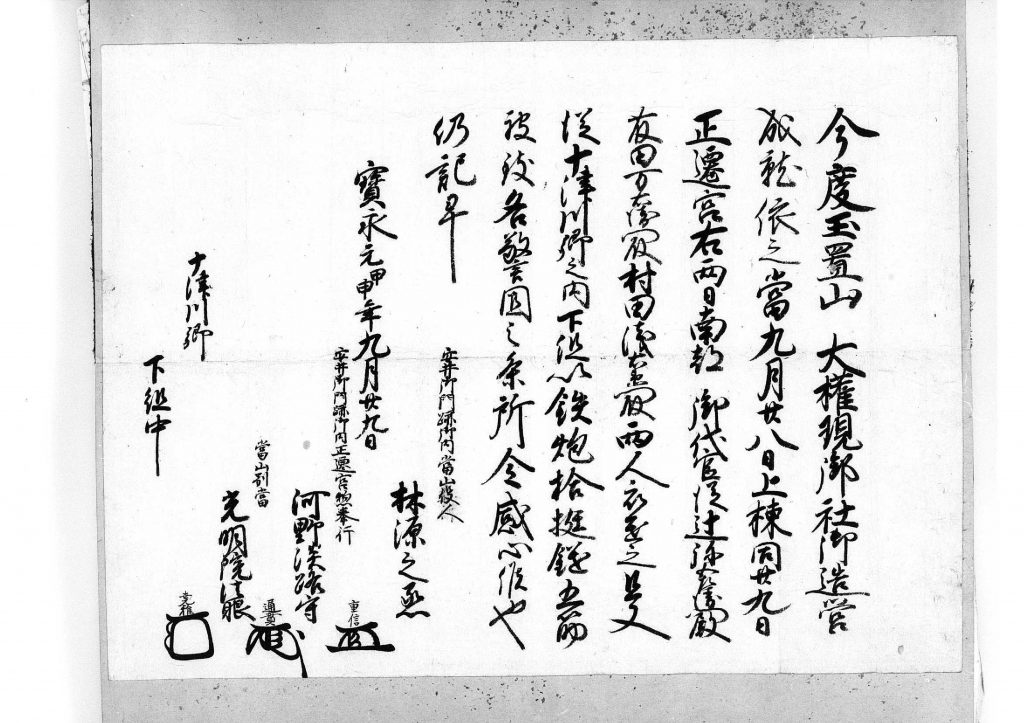 今度玉置山　大権現御社御造営
成就依之當九月廿八日上棟同廿九日
正遷宮右両日南都　御代官従辻弥五左衛門殿
友田万右衛門殿村田儀右衛門殿両人衣之且又
従十津川郷之内下組以鉄炮拾挺鑓五筋
被致各警固之条所令感心候也
仍記早
寶永元甲申年九月廿九日
安井御門跡御内當山役人
林源之丞
重信
安井御門跡御内正遷宮惣奉行
河野淡路守
通
當山別當
光明院法眼
十津川郷
下組中